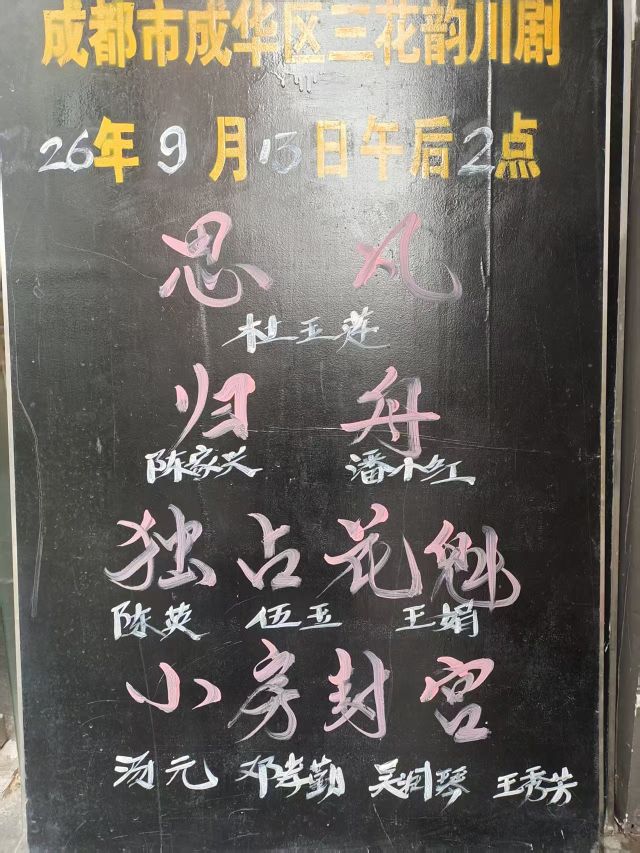 成都市成华区三花韵川剧
26年9月13日午后2点
思凡
杜玉莲
归舟
陈家兴 潘小红
独占花魁
陈英 伍玉 王娟
小房封宫
汤元 邓孝勤 吴润琴 王秀芳